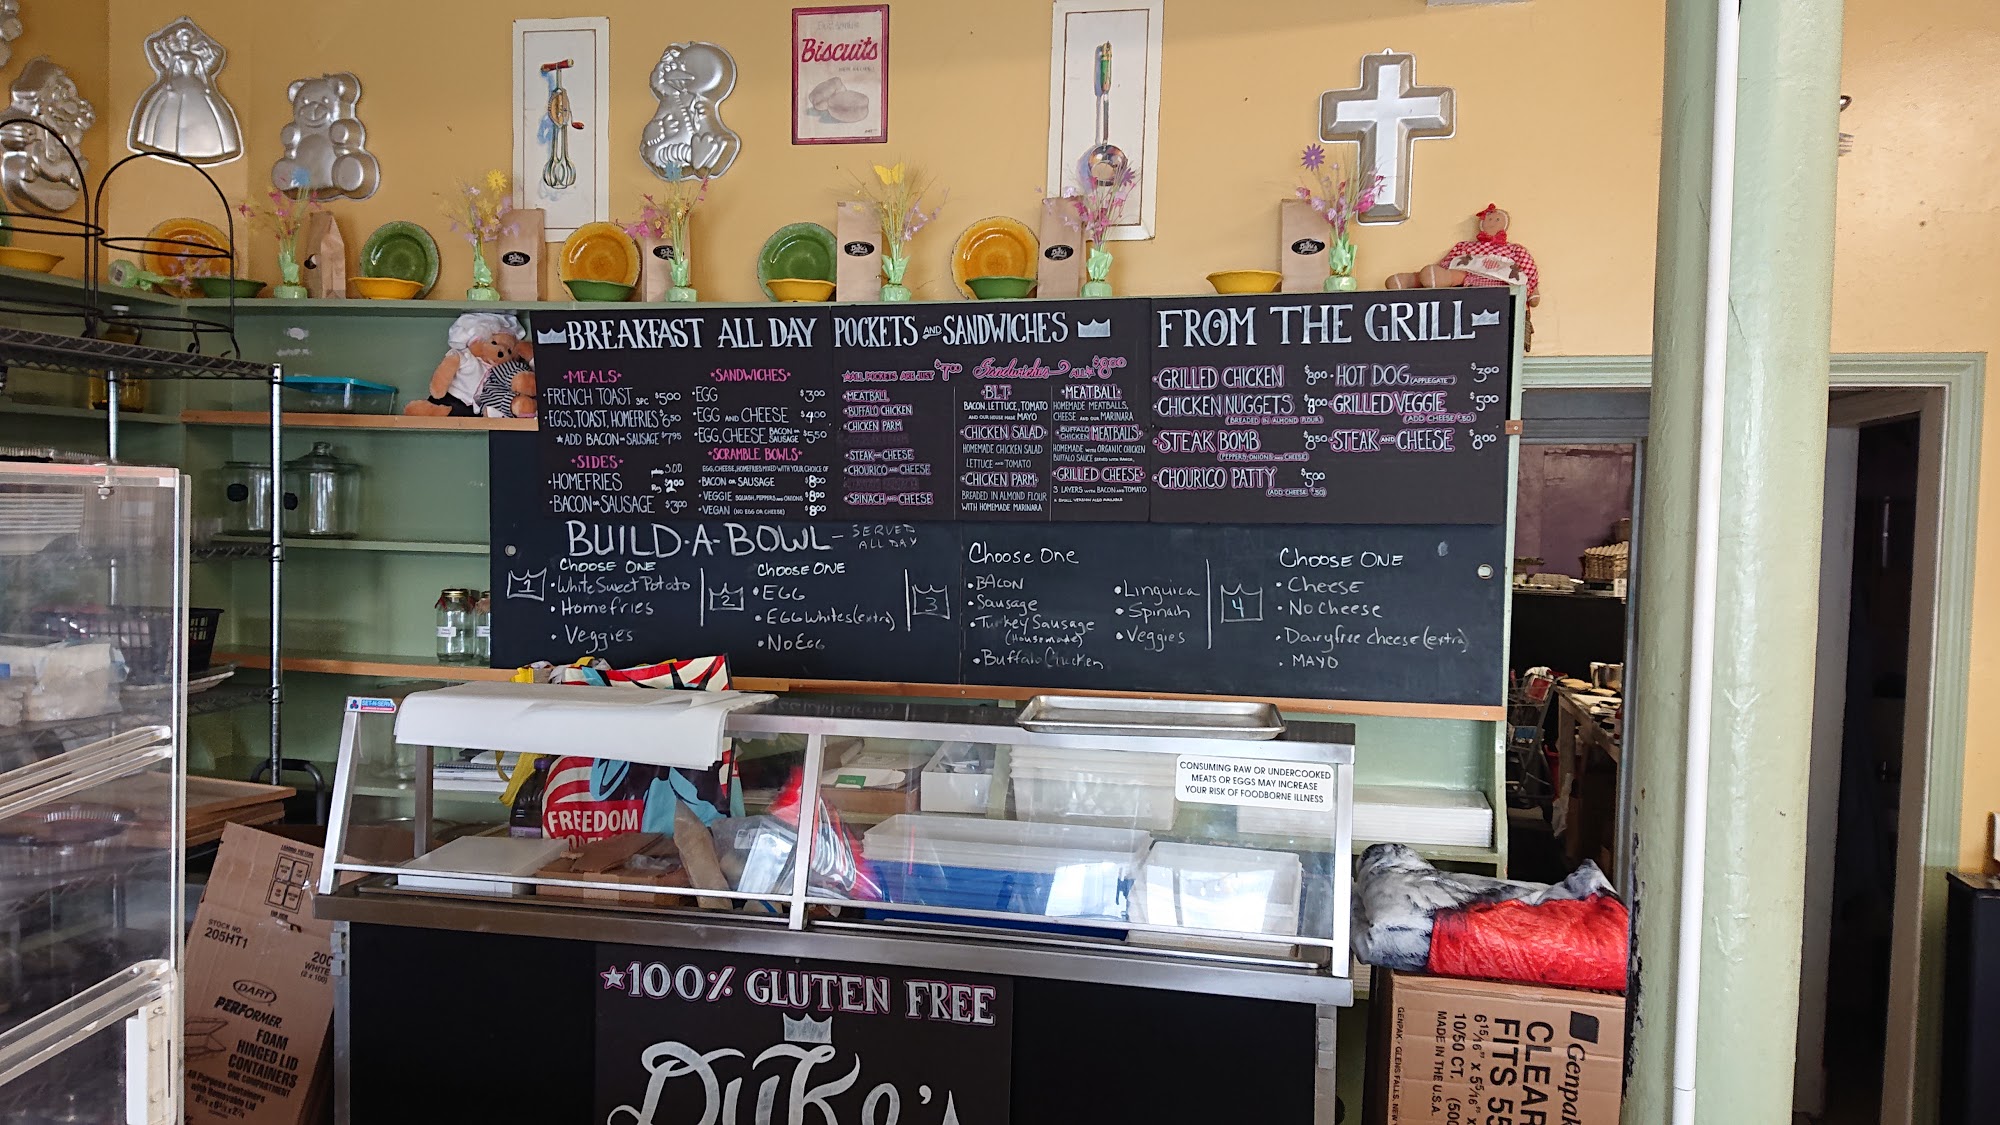 Biscuits
Duke's
BREAKFAST ALL DAY
•MEALS•
•FRENCH TOAST 3PC $5.00
•EGGS, TOAST, HOMEFRIES $6.50
★ADD BACON OR SAUSAGE $7.95
•SIDES•
•HOMEFRIES
3.00
•BACON OR SAUSAGE $3.00
•SANDWICHES•
•EGG $3.00
•EGG AND CHEESE $4.00
•EGG, CHEESE BACON OR SAUSAGE $5.50
•SCRAMBLE BOWLS•
EGG, CHEESE, HOMEFRIES MIXED WITH YOUR CHOICE OF
•BACON OR SAUSAGE $8.00
•VEGGIE SQUASH, PEPPERS AND ONIONS $8.00
•VEGAN (NO EGG OR CHEESE) $8.00
POCKETS AND SANDWICHES
ALL POCKETS ARE JUST $7.00
•MEATBALL
•BUFFALO CHICKEN
•CHICKEN PARM
•STEAK AND CHEESE
•CHOURICO AND CHEESE
•SPINACH AND CHEESE
Sandwiches ALL $8.00
•BLT•
BACON, LETTUCE, TOMATO
AND OUR HOUSE MADE MAYO
•CHICKEN SALAD•
HOMEMADE CHICKEN SALAD
LETTUCE AND TOMATO
•CHICKEN PARM•
BREADED IN ALMOND FLOUR
WITH HOMEMADE MARINARA
•MEATBALL•
HOMEMADE MEATBALLS,
CHEESE AND OUR MARINARA
•BUFFALO CHICKEN MEATBALLS•
HOMEMADE WITH ORGANIC CHICKEN
BUFFALO SAUCE SERVED WITH RANCH
•GRILLED CHEESE•
3 LAYERS WITH BACON AND TOMATO
A SMALL VERSION ALSO AVAILABLE
FROM THE GRILL
•GRILLED CHICKEN $8.00
•CHICKEN NUGGETS $8.00
(BREADED IN ALMOND FLOUR)
•STEAK BOMB $8.50
(PEPPERS, ONIONS AND CHEESE)
•CHOURICO PATTY $5.00
(ADD CHEESE $.50)
•HOT DOG (APPLEGATE) $3.00
•GRILLED VEGGIE $5.00
(ADD CHEESE $.50)
•STEAK AND CHEESE $8.00
BUILD-A-BOWL - SERVED
ALL DAY
1
CHOOSE ONE
•White Sweet Potato
•Homefries
•Veggies
2
CHOOSE ONE
•EGG
•EGG WHITES (extra)
•No EGG
3
Choose One
•BACON
•Sausage
•Turkey Sausage
(Housemade)
•Buffalo Chicken
•Linguica
•Spinach
•Veggies
4
CHOOSE ONE
•Cheese
•No Cheese
•Dairyfree cheese (extra)
•MAYO
SET-N-SERVE
FREEDOM
CONSUMING RAW OR UNDERCOOKED
MEATS OR EGGS MAY INCREASE
YOUR RISK OF FOODBORNE ILLNESS
★100% GLUTEN FREE
Duke's
STOCK NO.
205HT1
200
WHITE
(2 x 100)
DART
PERFORMER
FOAM
HINGED LID
CONTAINERS
ONE COMPARTMENT
All Purpose Containers
with Removable Lid
Genpak
CLEAR
FITS 55
6 15/16" x 5 5/16" x
10/50 CT. (500
MADE IN THE U.S.A.
GENPAK • GLENS FALLS, NEW